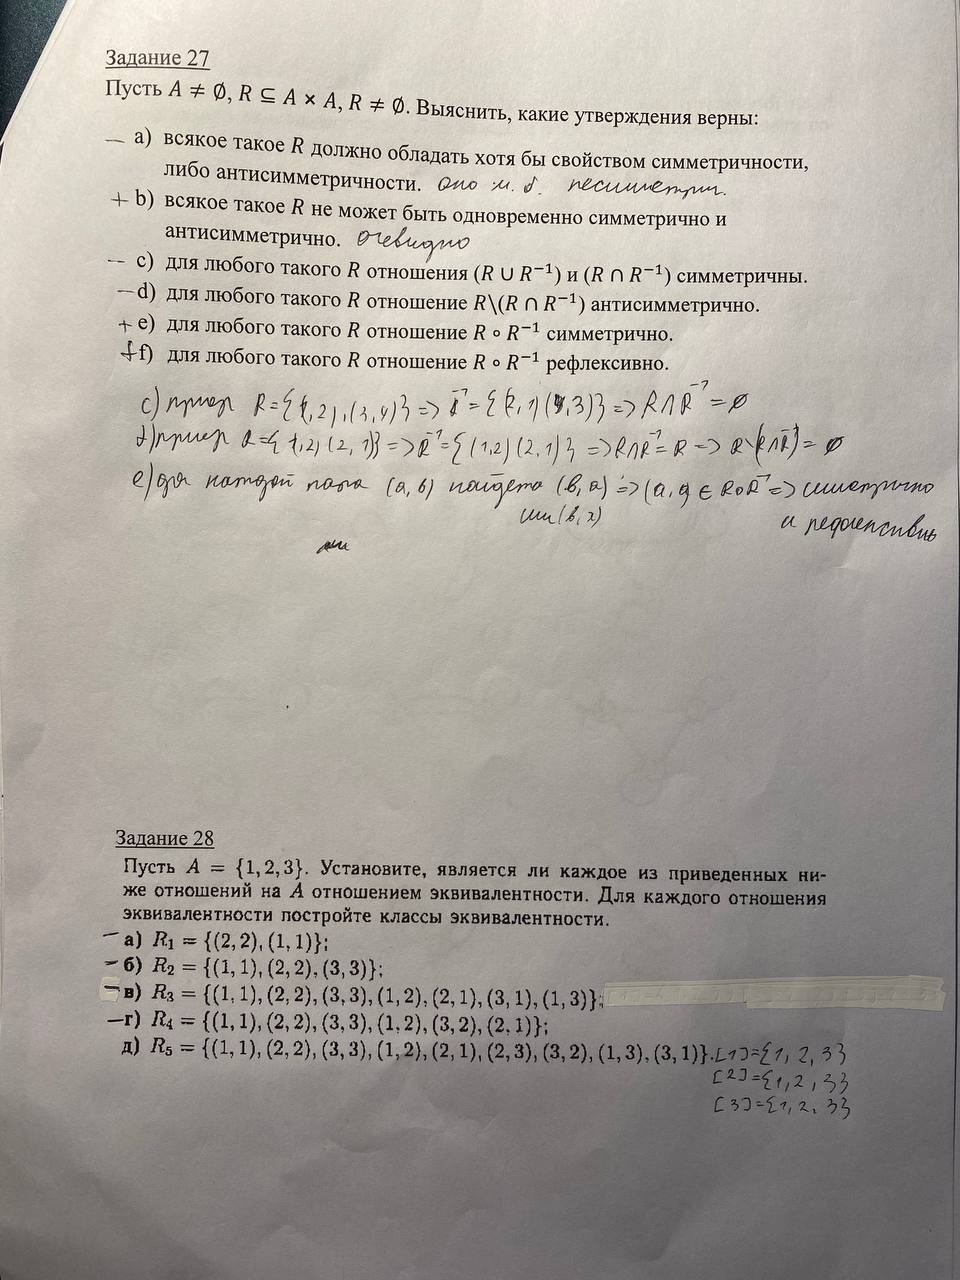 Задание 27
Пусть A ≠ ∅, R ⊆ A × A, R ≠ ∅. Выяснить, какие утверждения верны:
— a) всякое такое R должно обладать хотя бы свойством симметричности,
либо антисимметричности. оно м. б. несимметрич.
+ b) всякое такое R не может быть одновременно симметрично и
антисимметрично. очевидно
— c) для любого такого R отношения (R ∪ R⁻¹) и (R ∩ R⁻¹) симметричны.
— d) для любого такого R отношение R\(R ∩ R⁻¹) антисимметрично.
+ e) для любого такого R отношение R ∘ R⁻¹ симметрично.
+ f) для любого такого R отношение R ∘ R⁻¹ рефлексивно.
c) пример R={(1,2),(3,4)} => R⁻¹={(2,1)(4,3)} => R∩R⁻¹=∅
d) пример R={(1,2)(2,1)} => R⁻¹={(1,2)(2,1)} => R∩R⁻¹=R => R\(R∩R⁻¹)=∅
e) для каждой пара (a,b) найдётся (b,a) => (a,a) ∈ R∘R⁻¹ => симметрично
или (b,x)
и рефлексивно
или
Задание 28
Пусть A = {1, 2, 3}. Установите, является ли каждое из приведенных ни-
же отношений на A отношением эквивалентности. Для каждого отношения
эквивалентности постройте классы эквивалентности.
— а) R₁ = {(2, 2), (1, 1)};
— б) R₂ = {(1, 1), (2, 2), (3, 3)};
— в) R₃ = {(1, 1), (2, 2), (3, 3), (1, 2), (2, 1), (3, 1), (1, 3)};
— г) R₄ = {(1, 1), (2, 2), (3, 3), (1, 2), (3, 2), (2, 1)};
д) R₅ = {(1, 1), (2, 2), (3, 3), (1, 2), (2, 1), (2, 3), (3, 2), (1, 3), (3, 1)}. [1]={1, 2, 3}
[2]={1, 2, 3}
[3]={1, 2, 3}